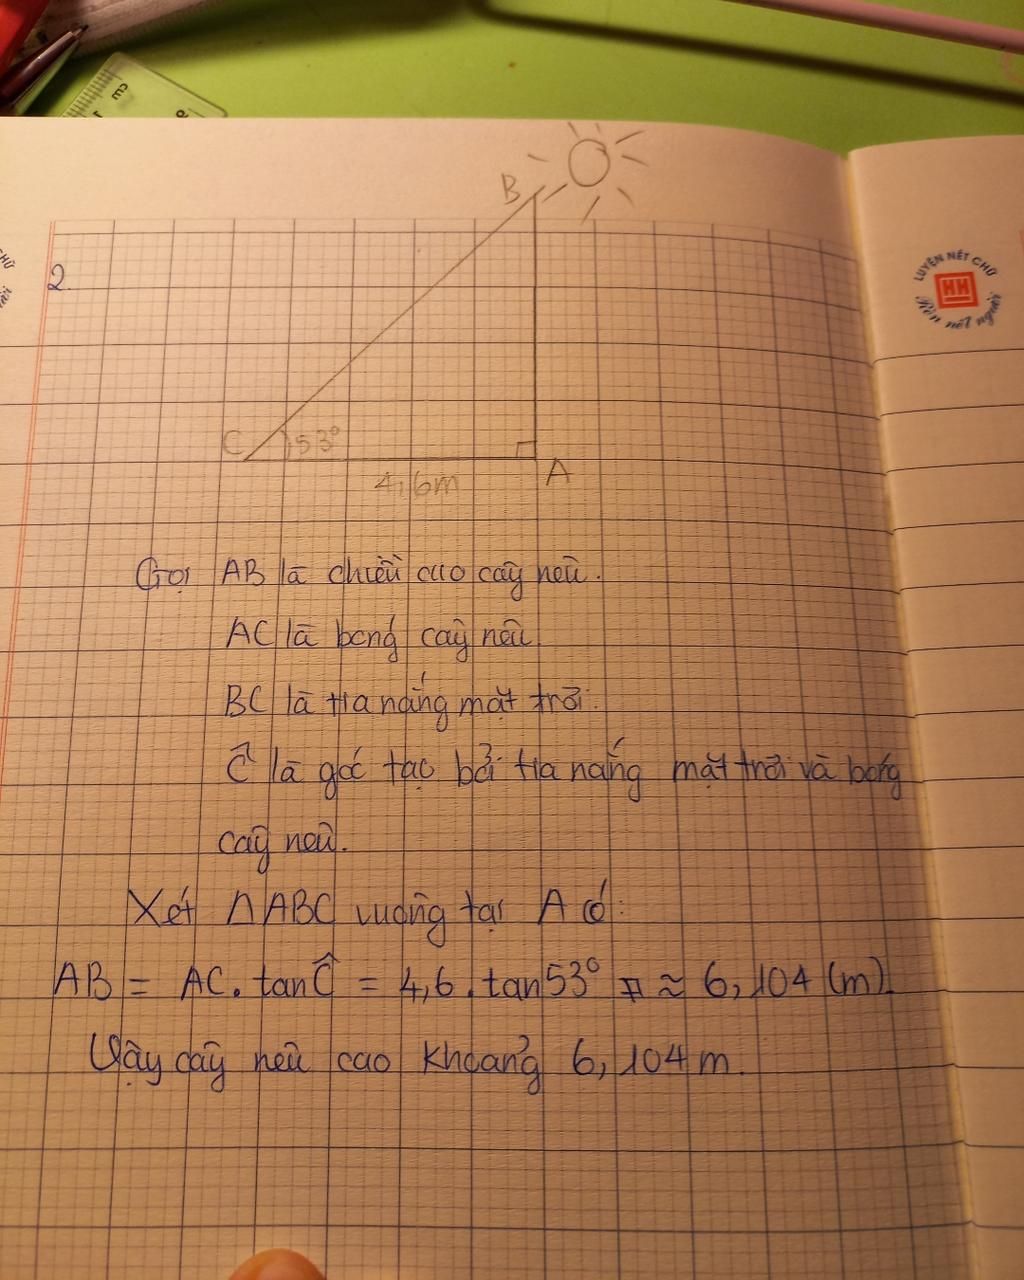 cm
B
LUYỆN NẾT CHỮ
HH
Rèn nết người
2.
C
53°
4,6m
A
Gọi AB là chiều cao cây nêu.
AC là bóng cây nêu.
BC là tia nắng mặt trời.
Ĉ là góc tạo bởi tia nắng mặt trời và bóng
cây nêu.
Xét ΔABC vuông tại A có:
AB = AC . tanĈ = 4,6 . tan53° ≈ 6,104 (m).
Vậy cây nêu cao khoảng 6,104 m.